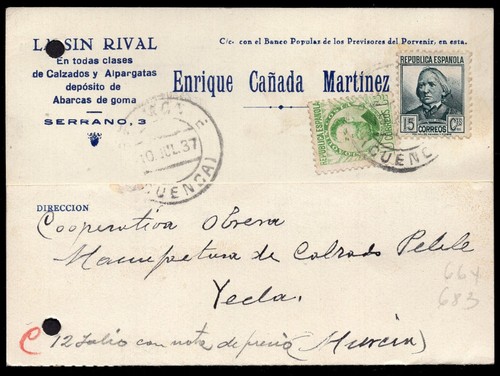 LA SIN RIVAL
En todas clases
de Calzados y Alpargatas
depósito de
Abarcas de goma
SERRANO, 3
C/c. con el Banco Popular de los Previsores del Porvenir, en esta.
Enrique Cañada Martínez
REPUBLICA ESPAÑOLA
15 Cts
CORREOS
REPUBLICA ESPAÑOLA
10 JUL. 37
(CUENCA)
CUENC
DIRECCION
Cooperativa Obrera
Manufactura de Calzado Pelele
Yecla.
12 Julio con nota de precio (Murcia)
664
683